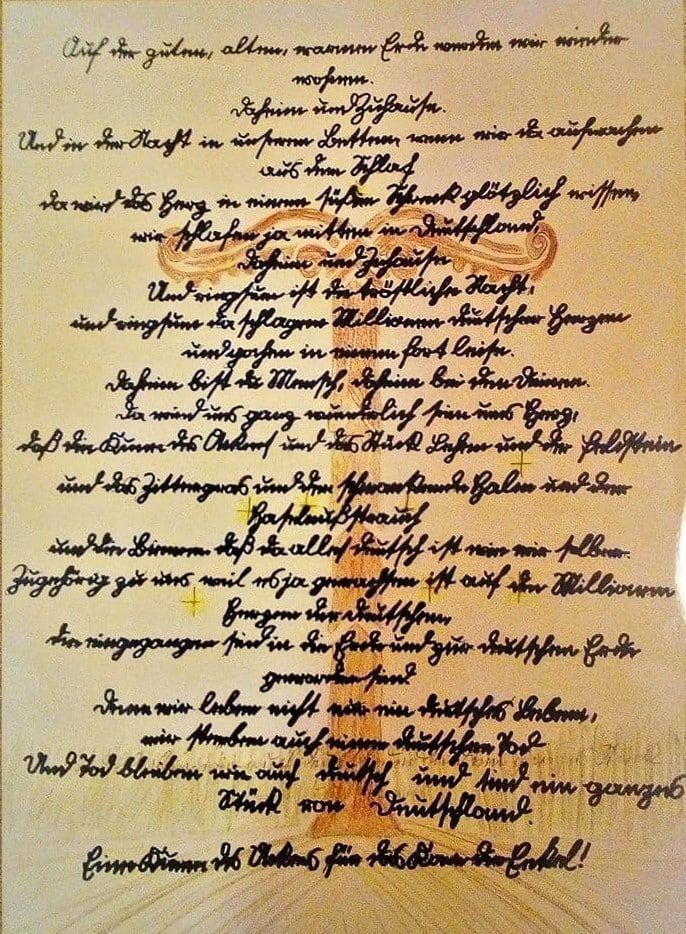 Auf der guten, alten, warmen Erde werden wir wieder
wohnen.
Daheim und Zuhause.
Und in der Nacht in unseren Betten, wenn wir da aufwachen
aus dem Schlaf
da wird das Herz in einem süßen Schreck plötzlich wissen,
wir schlafen ja mitten in Deutschland,
daheim und Zuhause
Und ringsum ist die tröstliche Nacht,
und ringsum da schlagen Millionen deutscher Herzen
und pochen in einem fort leise.
Daheim bist du Mensch, daheim bei den Deinen.
Da wird uns ganz wunderlich sein ums Herz,
daß die Krume des Ackers und das Stück Lehm und der Feldstein
und das Zittergras und der schwankende Halm und der
Haselnußstrauch
und die Bienen daß da alles deutsch ist wie wir selber.
Zugehörig zu uns weil es ja gewachsen ist auf den Millionen
Herzen der Deutschen,
die eingegangen sind in die Erde und zur deutschen Erde
geworden sind
Denn wir leben nicht nur ein deutsches Leben,
wir sterben auch einen deutschen Tod
Und Tod bleiben wir auch deutsch und sind ein ganzes
Stück von Deutschland.
Eine Krume des Ackers für das Korn der Enkel!